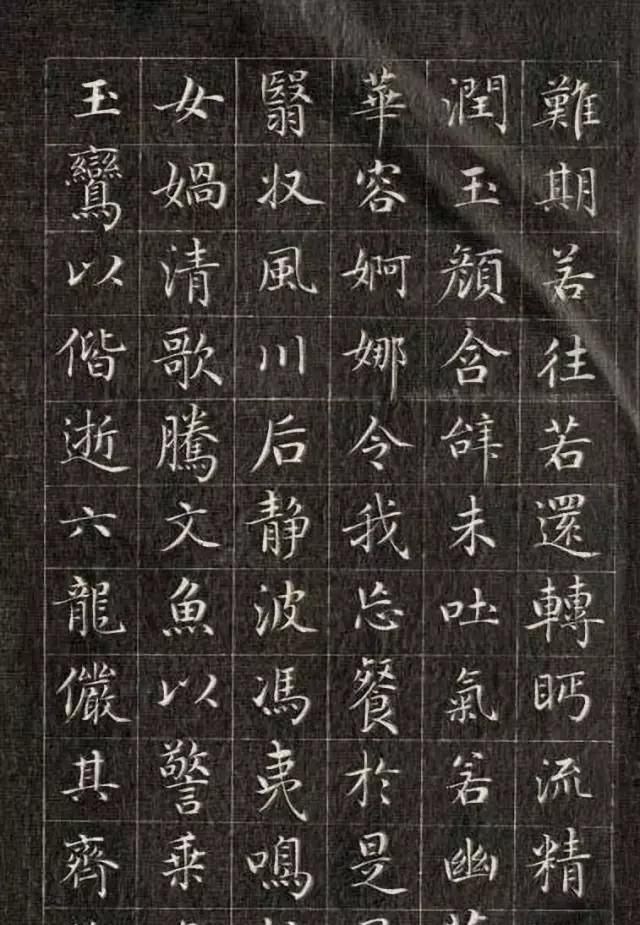 難期若往若還轉眄流精
潤玉顔含辝未吐氣若幽
華容婀娜令我忘餐於是
翳収風川后静波馮夷鳴
女媧清歌騰文魚以警乗
玉鸞以偕逝六龍儼其齊